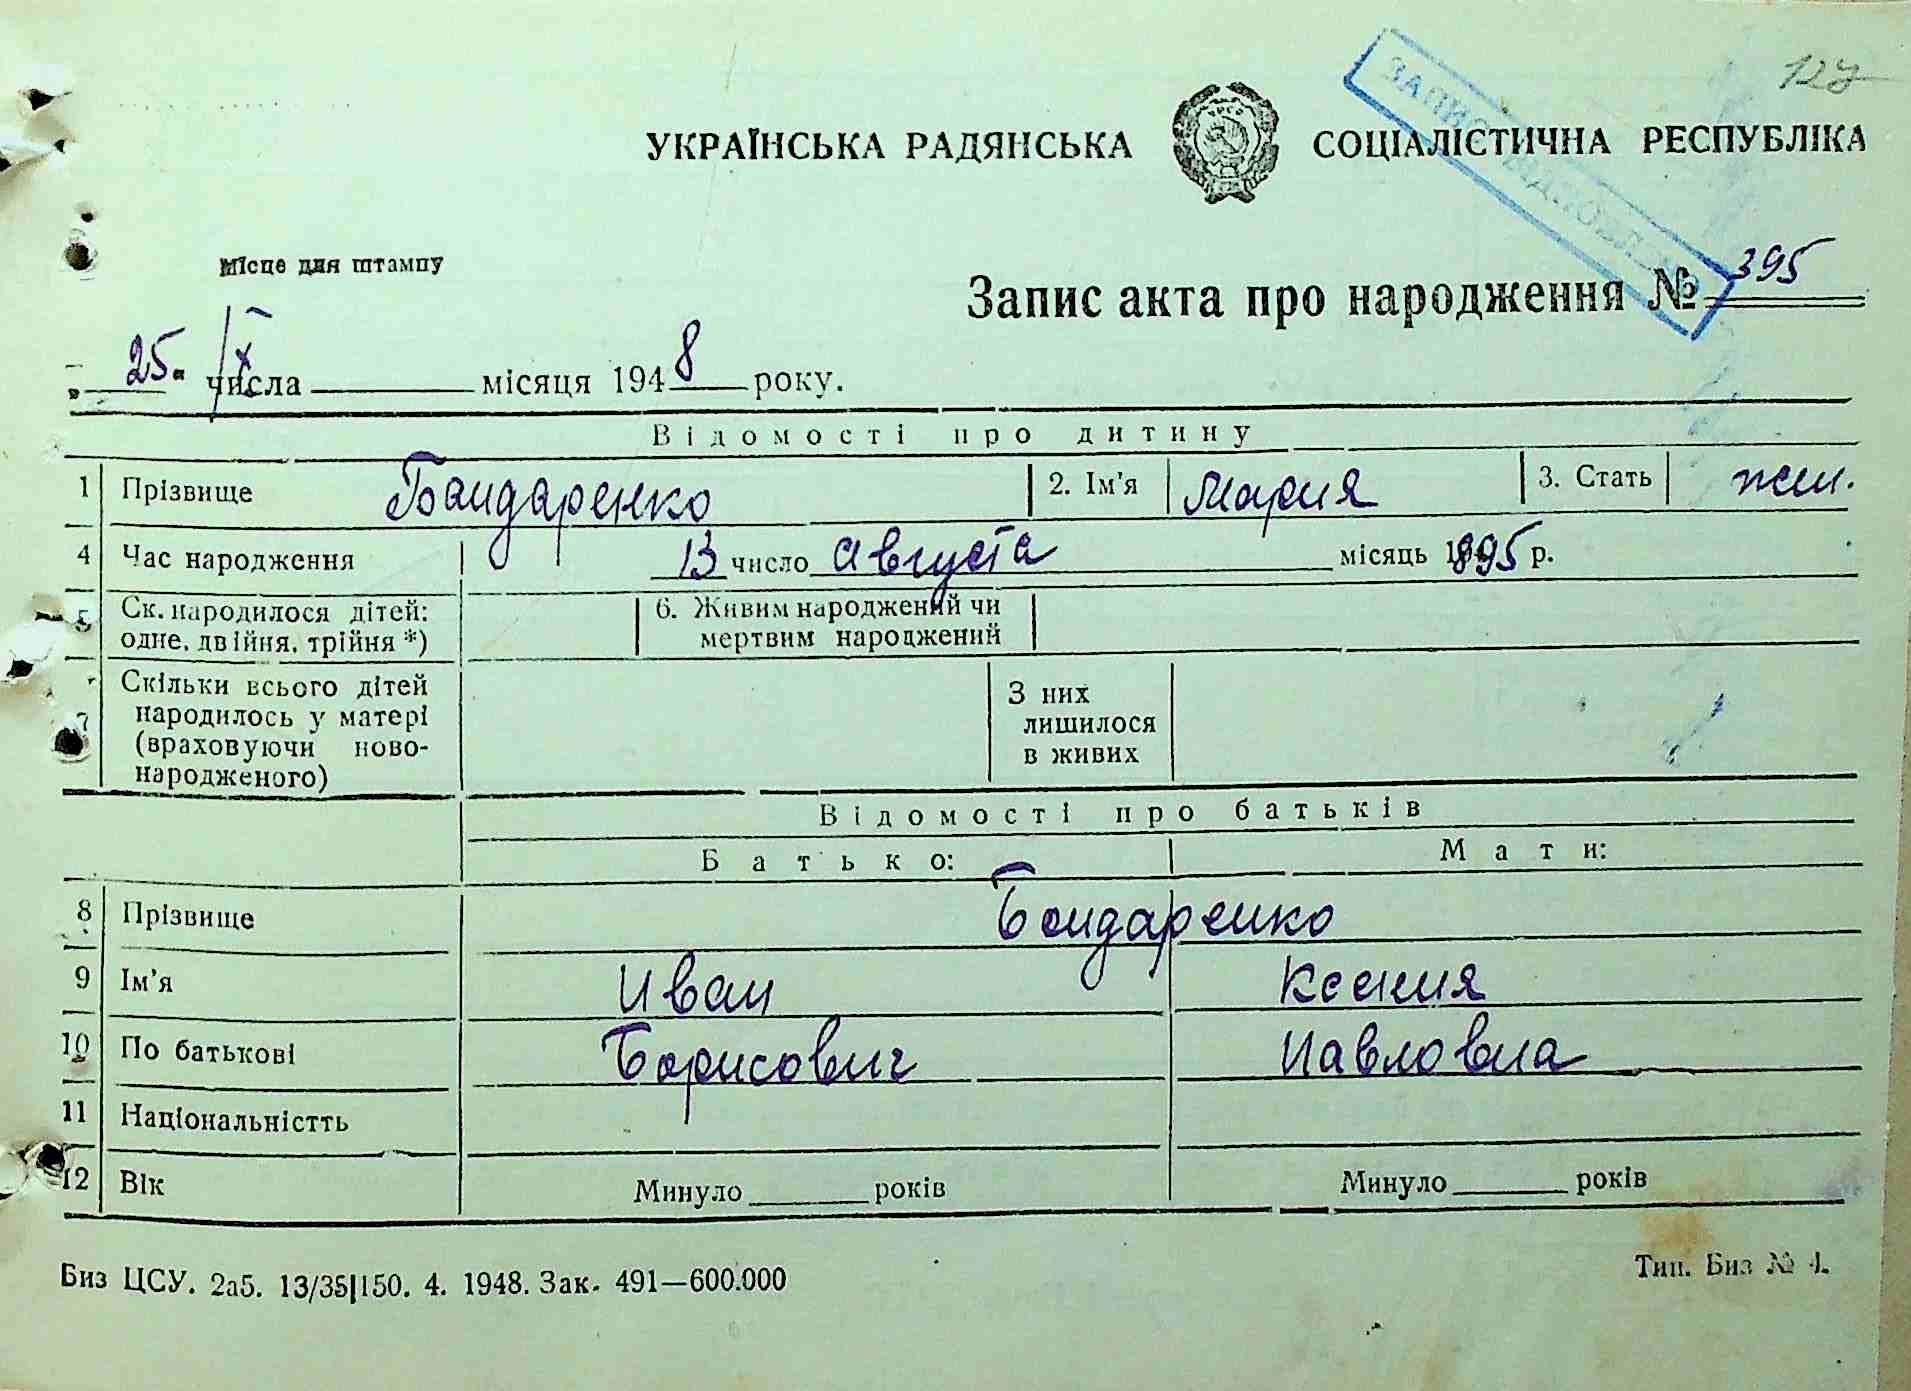 127
УКРАЇНСЬКА РАДЯНСЬКА СОЦІАЛІСТИЧНА РЕСПУБЛІКА
ЗАПИС ВІДНОВЛЕН
Місце для штампу
Запис акта про народження № 395
„25" числа X місяця 1948 року.
Відомості про дитину
1 Прізвище Бондаренко 2. Ім'я Мария 3. Стать жен.
4 Час народження 13 число Августа місяць 1895 р.
5 Ск. народилося дітей: одне, двійня, трійня *) 6. Живим народжений чи мертвим народжений
7 Скільки всього дітей народилось у матері (враховуючи ново-народженого) З них лишилося в живих
Відомості про батьків
Батько: Мати:
8 Прізвище Бондаренко
9 Ім'я Иван Ксения
10 По батькові Борисович Павловна
11 Національністть
12 Вік Минуло ______ років Минуло ______ років
Биз ЦСУ. 2а5. 13/35|150. 4. 1948. Зак. 491—600.000 Тип. Биз № 4.